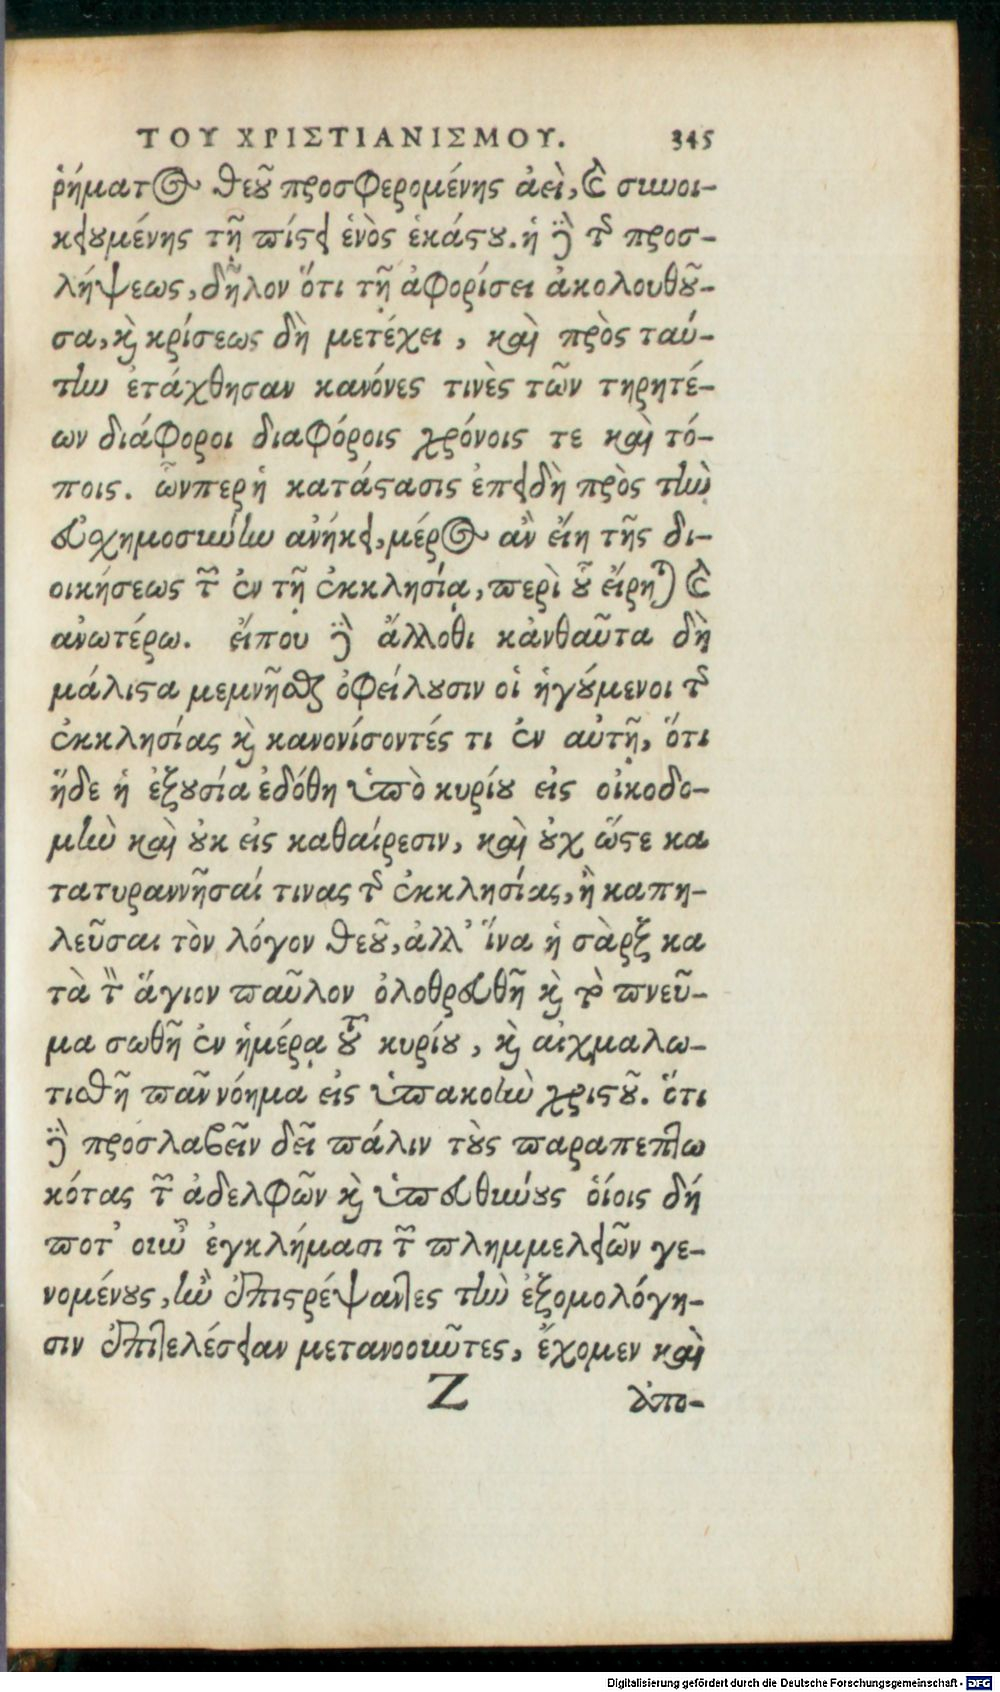 ΤΟΥ ΧΡΙΣΤΙΑΝΙΣΜΟΥ. 345
ῥήματος θεοῦ προσφερομένης ἀεὶ, καὶ συνοι-
κειουμένης τῇ πίστει ἑνὸς ἑκάστου. ἡ δὲ τῆς προσ-
λήψεως, δῆλον ὅτι τῇ ἀφορίσει ἀκολουθοῦ-
σα, καὶ κρίσεως δὴ μετέχει, καὶ πρὸς ταύ-
την ἐτάχθησαν κανόνες τινὲς τῶν τηρητέ-
ων διάφοροι διαφόροις χρόνοις τε καὶ τό-
ποις. ὧνπερ ἡ κατάστασις ἐπειδὴ πρὸς τὴν
εὐχημοσύνην ἀνήκει, μέρος ἂν εἴη τῆς δι-
οικήσεως τῶν ἐν τῇ ἐκκλησίᾳ, περὶ οὗ εἴρηται καὶ
ἀνωτέρω. εἴπου δὲ ἄλλοθι κἀνθαῦτα δὴ
μάλιστα μεμνῆσθαι ὀφείλουσιν οἱ ἡγούμενοι τῆς
ἐκκλησίας καὶ κανονίσοντές τι ἐν αὐτῇ, ὅτι
ἥδε ἡ ἐξουσία ἐδόθη ὑπὸ κυρίου εἰς οἰκοδο-
μὴν καὶ οὐκ εἰς καθαίρεσιν, καὶ οὐχ ὥστε κα
τατυραννῆσαί τινας τῆς ἐκκλησίας, ἢ καπη-
λεῦσαι τὸν λόγον θεοῦ, ἀλλ' ἵνα ἡ σὰρξ κα
τὰ τὸν ἅγιον παῦλον ὀλοθρευθῇ καὶ τὸ πνεῦ-
μα σωθῇ ἐν ἡμέρᾳ τοῦ κυρίου, καὶ αἰχμαλω-
τισθῇ πᾶν νόημα εἰς ὑπακοὴν χριστοῦ. ὅτι
δὲ προσλαβεῖν δεῖ πάλιν τοὺς παραπεπτω
κότας τῶν ἀδελφῶν καὶ ὑπευθύνους οἵοις δή
ποτ' οὖν ἐγκλήμασι τῶν πλημμελειῶν γε-
νομένους, ἢν ἐπιστρέψαντες τὴν ἐξομολόγη-
σιν ἐπιτελέσειαν μετανοοῦντες, ἔχομεν καὶ
Z ἀπο-
Digitalisierung gefördert durch die Deutsche Forschungsgemeinschaft - DFG